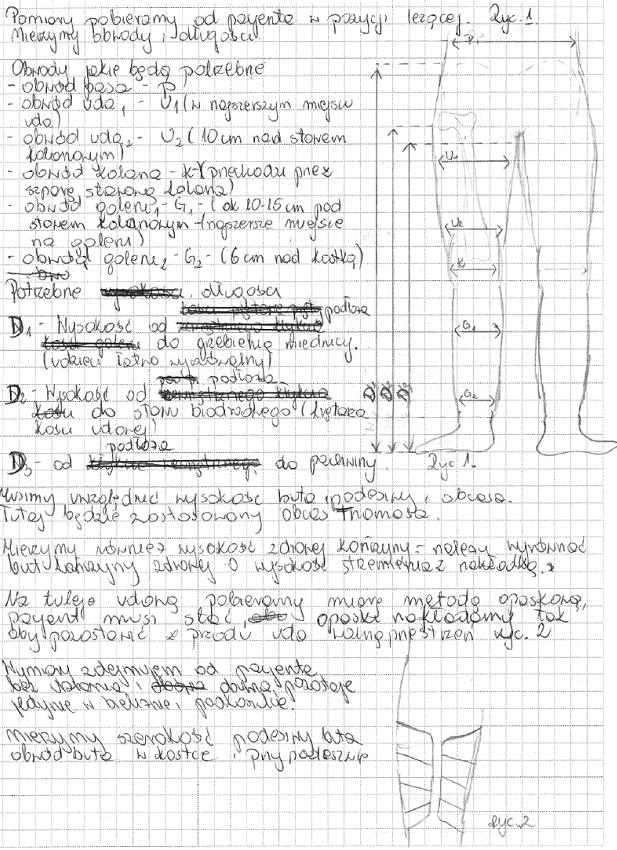 Pomiary pobieramy od pacjenta w pozycji leżącej. Ryc. 1.
Mierzymy obwody i długości.
Obwody jakie będą potrzebne
- obwód pasa - P
- obwód uda1 - U1 (w najszerszym miejscu
uda)
- obwód uda2 - U2 (10 cm nad stawem
kolanowym)
- obwód kolana - K - (przechodzi przez
szparę stawową kolana)
- obwód goleni1 - G1 - (ok 10-15 cm pod
stawem kolanowym - najszersze miejsce
na goleni)
- obwód goleni2 - G2 - (6 cm nad kostką)
Potrzebne długości
podłoża
D1 - Wysokość od
do grzebienia miednicy.
podłoża
D2 - Wysokość od
do stawu biodrowego (krętarza
kości udowej)
podłoża
D3 - od do pachwiny.
P1
U1
U2
K
G1
G2
D D D
Ryc 1.
Musimy uwzględnić wysokość buta podeszwy i obcasa.
Tutaj będzie zastosowany obcas Thomasa.
Mierzymy również wysokość zdrowej kończyny - należy wyrównać
but kończyny zdrowej o wysokość strzemienia z nakładką.
Na tuleję udową pobieramy miarę metodą opaskową,
pacjent musi stać, opaskę nakładamy tak
aby pozostawić z przodu uda wolną przestrzeń ryc. 2
Wymiary zdejmujemy od pacjenta
bez ubrania i pozostaje
jedynie w bieliźnie
Mierzymy szerokość podeszwy buta
obwód buta w kostce i przy podeszwie
Ryc. 2